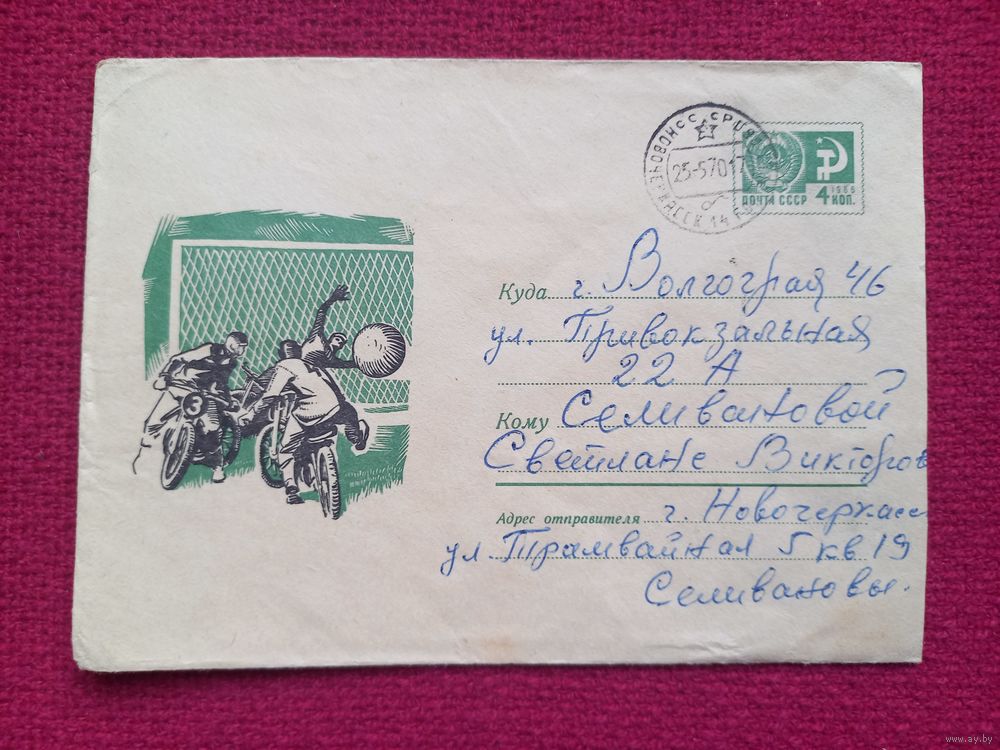 НОВОЧЕРКАССК 14
25-570 17
1966
ПОЧТА СССР 4 КОП.
Куда г. Волгоград 46
ул. Привокзальная
22 А
Кому Селивановой
Светлане Викторов
Адрес отправителя г. Новочеркасс
ул. Трамвайная 5 кв 19
Селивановы.
3
www.ay.by